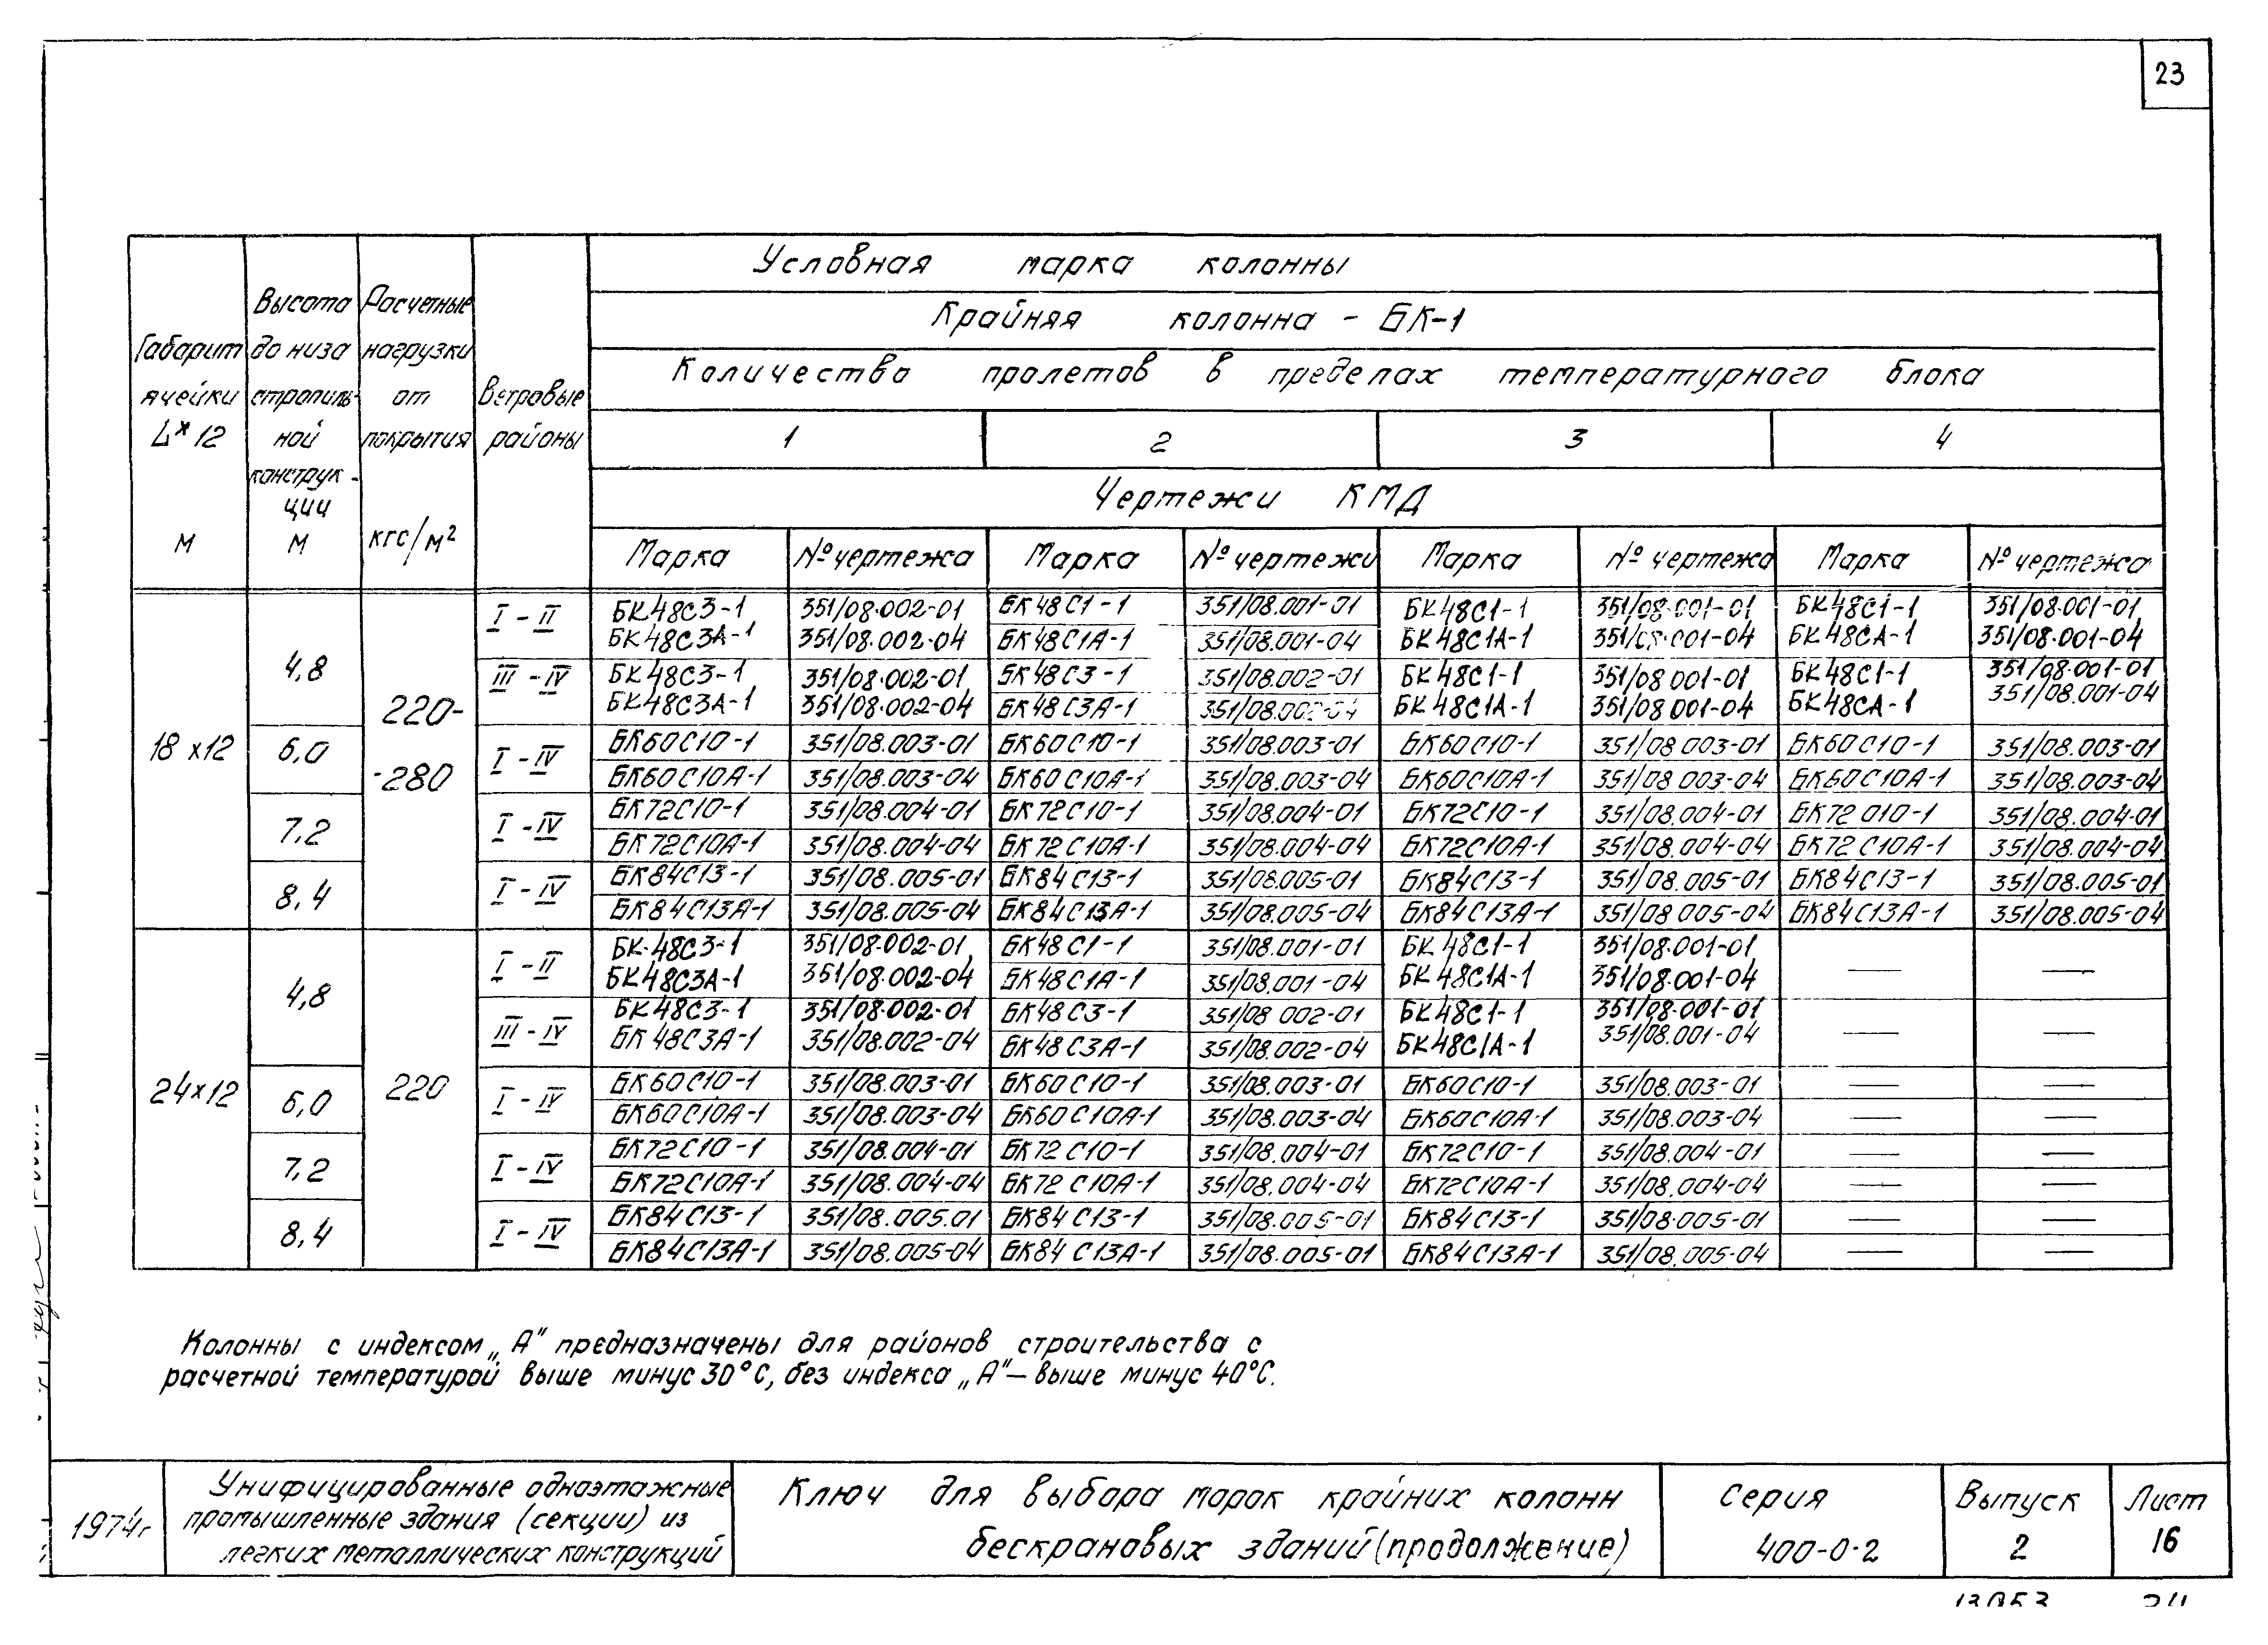 23
Условная марка колонны
Крайняя колонна - БК-1
Количество пролетов в пределах температурного блока
Габарит ячейки L×12 м
Высота до низа стропильной конструк-ции м
Расчетные нагрузки от покрытия кгс/м²
Ветровые районы
1 2 3 4
Чертежи КМД
Марка № чертежа Марка № чертежи Марка № чертежа Марка № чертежа
18×12 220- -280
4,8 I-II БК48С3-1 351/08.002-01 БК48С1-1 351/08.001-01 БК48С1-1 351/08.001-01 БК48С1-1 351/08.001-01
БК48С3А-1 351/08.002-04 БК48С1А-1 351/08.001-04 БК48С1А-1 351/08.001-04 БК48СА-1 351/08.001-04
III-IV БК48С3-1 351/08.002-01 БК48С3-1 351/08.002-01 БК48С1-1 351/08.001-01 БК48С1-1 351/08.001-01
БК48С3А-1 351/08.002-04 БК48С3А-1 351/08.002-04 БК48С1А-1 351/08.001-04 БК48СА-1 351/08.001-04
6,0 I-IV БК60С10-1 351/08.003-01 БК60С10-1 351/08.003-01 БК60С10-1 351/08.003-01 БК60С10-1 351/08.003-01
БК60С10А-1 351/08.003-04 БК60С10А-1 351/08.003-04 БК60С10А-1 351/08.003-04 БК60С10А-1 351/08.003-04
7,2 I-IV БК72С10-1 351/08.004-01 БК72С10-1 351/08.004-01 БК72С10-1 351/08.004-01 БК72 010-1 351/08.004-01
БК72С10А-1 351/08.004-04 БК72С10А-1 351/08.004-04 БК72С10А-1 351/08.004-04 БК72С10А-1 351/08.004-04
8,4 I-IV БК84С13-1 351/08.005-01 БК84С13-1 351/08.005-01 БК84С13-1 351/08.005-01 БК84С13-1 351/08.005-01
БК84С13А-1 351/08.005-04 БК84С13А-1 351/08.005-04 БК84С13А-1 351/08.005-04 БК84С13А-1 351/08.005-04
24×12 220
4,8 I-II БК-48С3-1 351/08.002-01 БК48С1-1 351/08.001-01 БК48С1-1 351/08.001-01 — —
БК48С3А-1 351/08.002-04 БК48С1А-1 351/08.001-04 БК48С1А-1 351/08.001-04
III-IV БК48С3-1 351/08.002-01 БК48С3-1 351/08.002-01 БК48С1-1 351/08.001-01 — —
БК48С3А-1 351/08.002-04 БК48С3А-1 351/08.002-04 БК48С1А-1 351/08.001-04
6,0 I-IV БК60С10-1 351/08.003-01 БК60С10-1 351/08.003-01 БК60С10-1 351/08.003-01 — —
БК60С10А-1 351/08.003-04 БК60С10А-1 351/08.003-04 БК60С10А-1 351/08.003-04 — —
7,2 I-IV БК72С10-1 351/08.004-01 БК72С10-1 351/08.004-01 БК72С10-1 351/08.004-01 — —
БК72С10А-1 351/08.004-04 БК72С10А-1 351/08.004-04 БК72С10А-1 351/08.004-04 — —
8,4 I-IV БК84С13-1 351/08.005.01 БК84С13-1 351/08.005-01 БК84С13-1 351/08.005-01 — —
БК84С13А-1 351/08.005-04 БК84С13А-1 351/08.005-01 БК84С13А-1 351/08.005-04 — —
Колонны с индексом „А" предназначены для районов строительства с
расчетной температурой выше минус 30°С, без индекса „А" — выше минус 40°С.
1974г
Унифицированные одноэтажные
промышленные здания (секции) из
легких металлических конструкций
Ключ для выбора марок крайних колонн
бескрановых зданий (продолжение)
Серия
400-0-2
Выпуск
2
Лист
16
13053 24